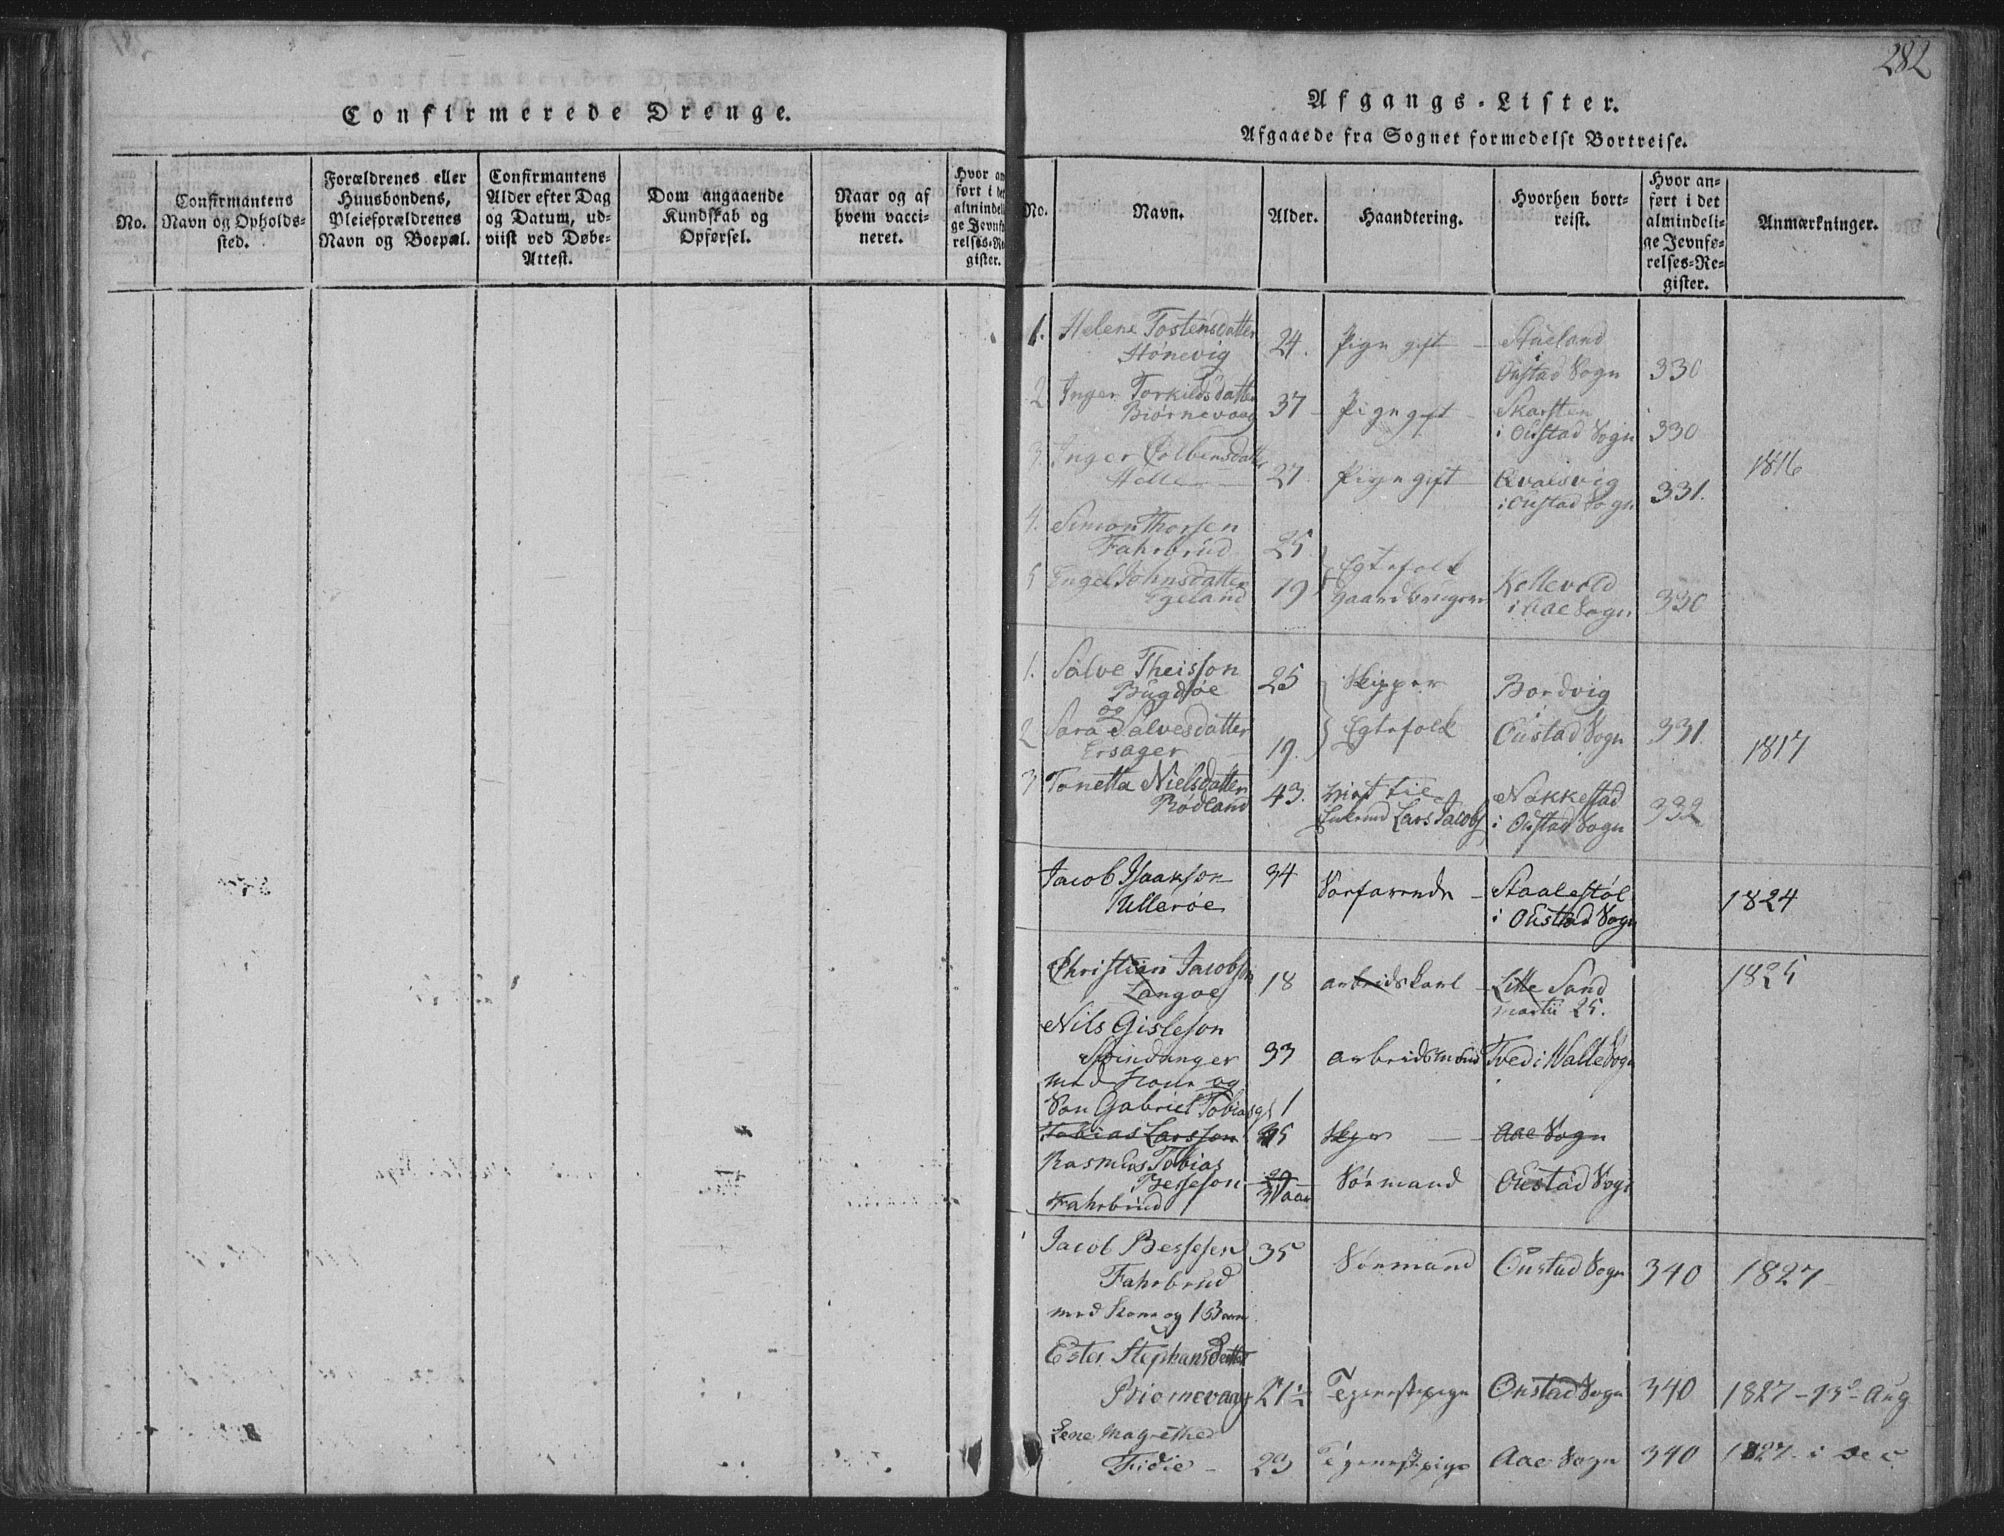 Confirmerede Drenge.
No.
Confirmantens
Navn og Opholds-
sted.
Forældrenes eller
Huusbondens,
Pleieforældrenes
Navn og Boepæl.
Confirmantens
Alder efter Dag
og Datum, ud-
viist ved Døbe-
Attest.
Dom angaaende
Kundskab og
Opførsel.
Naar og af
hvem vacci-
neret.
Hvor an
ført i det
almindeli
ge Jevnfø
relses-Re
gister.
282
Afgangs-Lister.
Afgaaede fra Sognet formedelst Bortreise.
No.
Navn.
Alder.
Haandtering.
Hvorhen bort-
reist.
Hvor an-
ført i det
almindeli-
ge Jevnfø-
relses-Re-
gister.
Anmærkninger.
1. Helene Tostensdatter
Hönevig 24. Pige gift Stueland
Oustad Sogn 330
2 Inger Torkildsdatter
Biörnevaag 37 Pige gift Skarsten
i Oustad Sogn 330
3. Inger
27 Pige gift Qvalsvig
i Oustad Sogn 331. 1816
4. Simon Thorsen
Fahrbrud 25 Egtefolk
5 Engel Johnsdatter
Egeland 19 Gaardbruger Kollevold
i Aae Sogn 330
1. Salve Theisson
Bugdöe 25 Skipper Bordvig
og
2 Sara Salvesdatter
Ersager 19. Egtefolk Oustad Sogn 331. 1817
3 Tonetta Nielsdatter
Rödland 43. Lars Jacobs Nökkestad
i Oustad Sogn 332
Jacob Isaakson
Ullerøe 34 Söefarende Staalestöl
i Oustad Sogn 1824
Christian Jacobson
Langøe 18 arbeidskarl Lille Sand
martii 25. 1825
Nils Gisleson
Spindanger 33 arbeidsmand Tved i Halle Sogn
med Kone og
Søn Gabriel Tobias 1
Tobias Larsson 35 Aae Sogn
Rasmus Tobias
Besseson 29
Fahrbrud Sörmand Oustad Sogn
Jacob Bessesen 35
Fahrbrud Sörmand Oustad Sogn 340 1827
med Kone og 1 Barn
Ester Stephansdatter
Biornevaag 27½ Tjenestepige Oustad Sogn 340 1827 - 13de Aug
Lene Magrethe
Fidie 23 Tjenestepige Aae Sogn 340 1827. i Dec